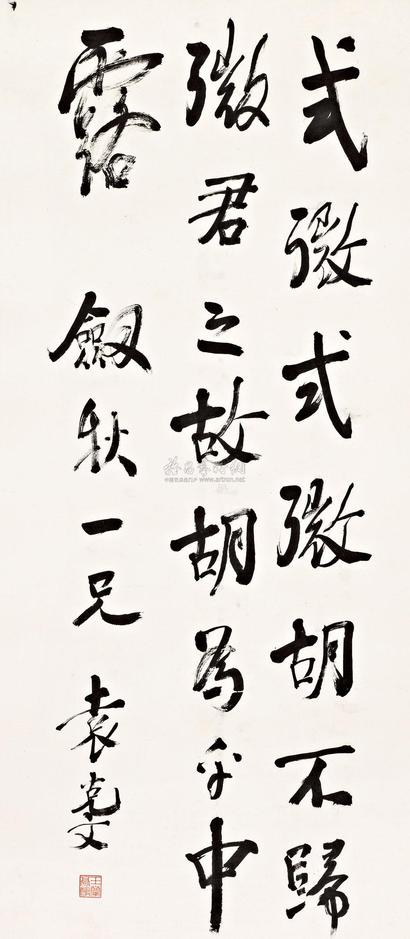 式微式微胡不歸
微君之故胡為乎中
露 劔秋一兄 袁克文
www.artron.net